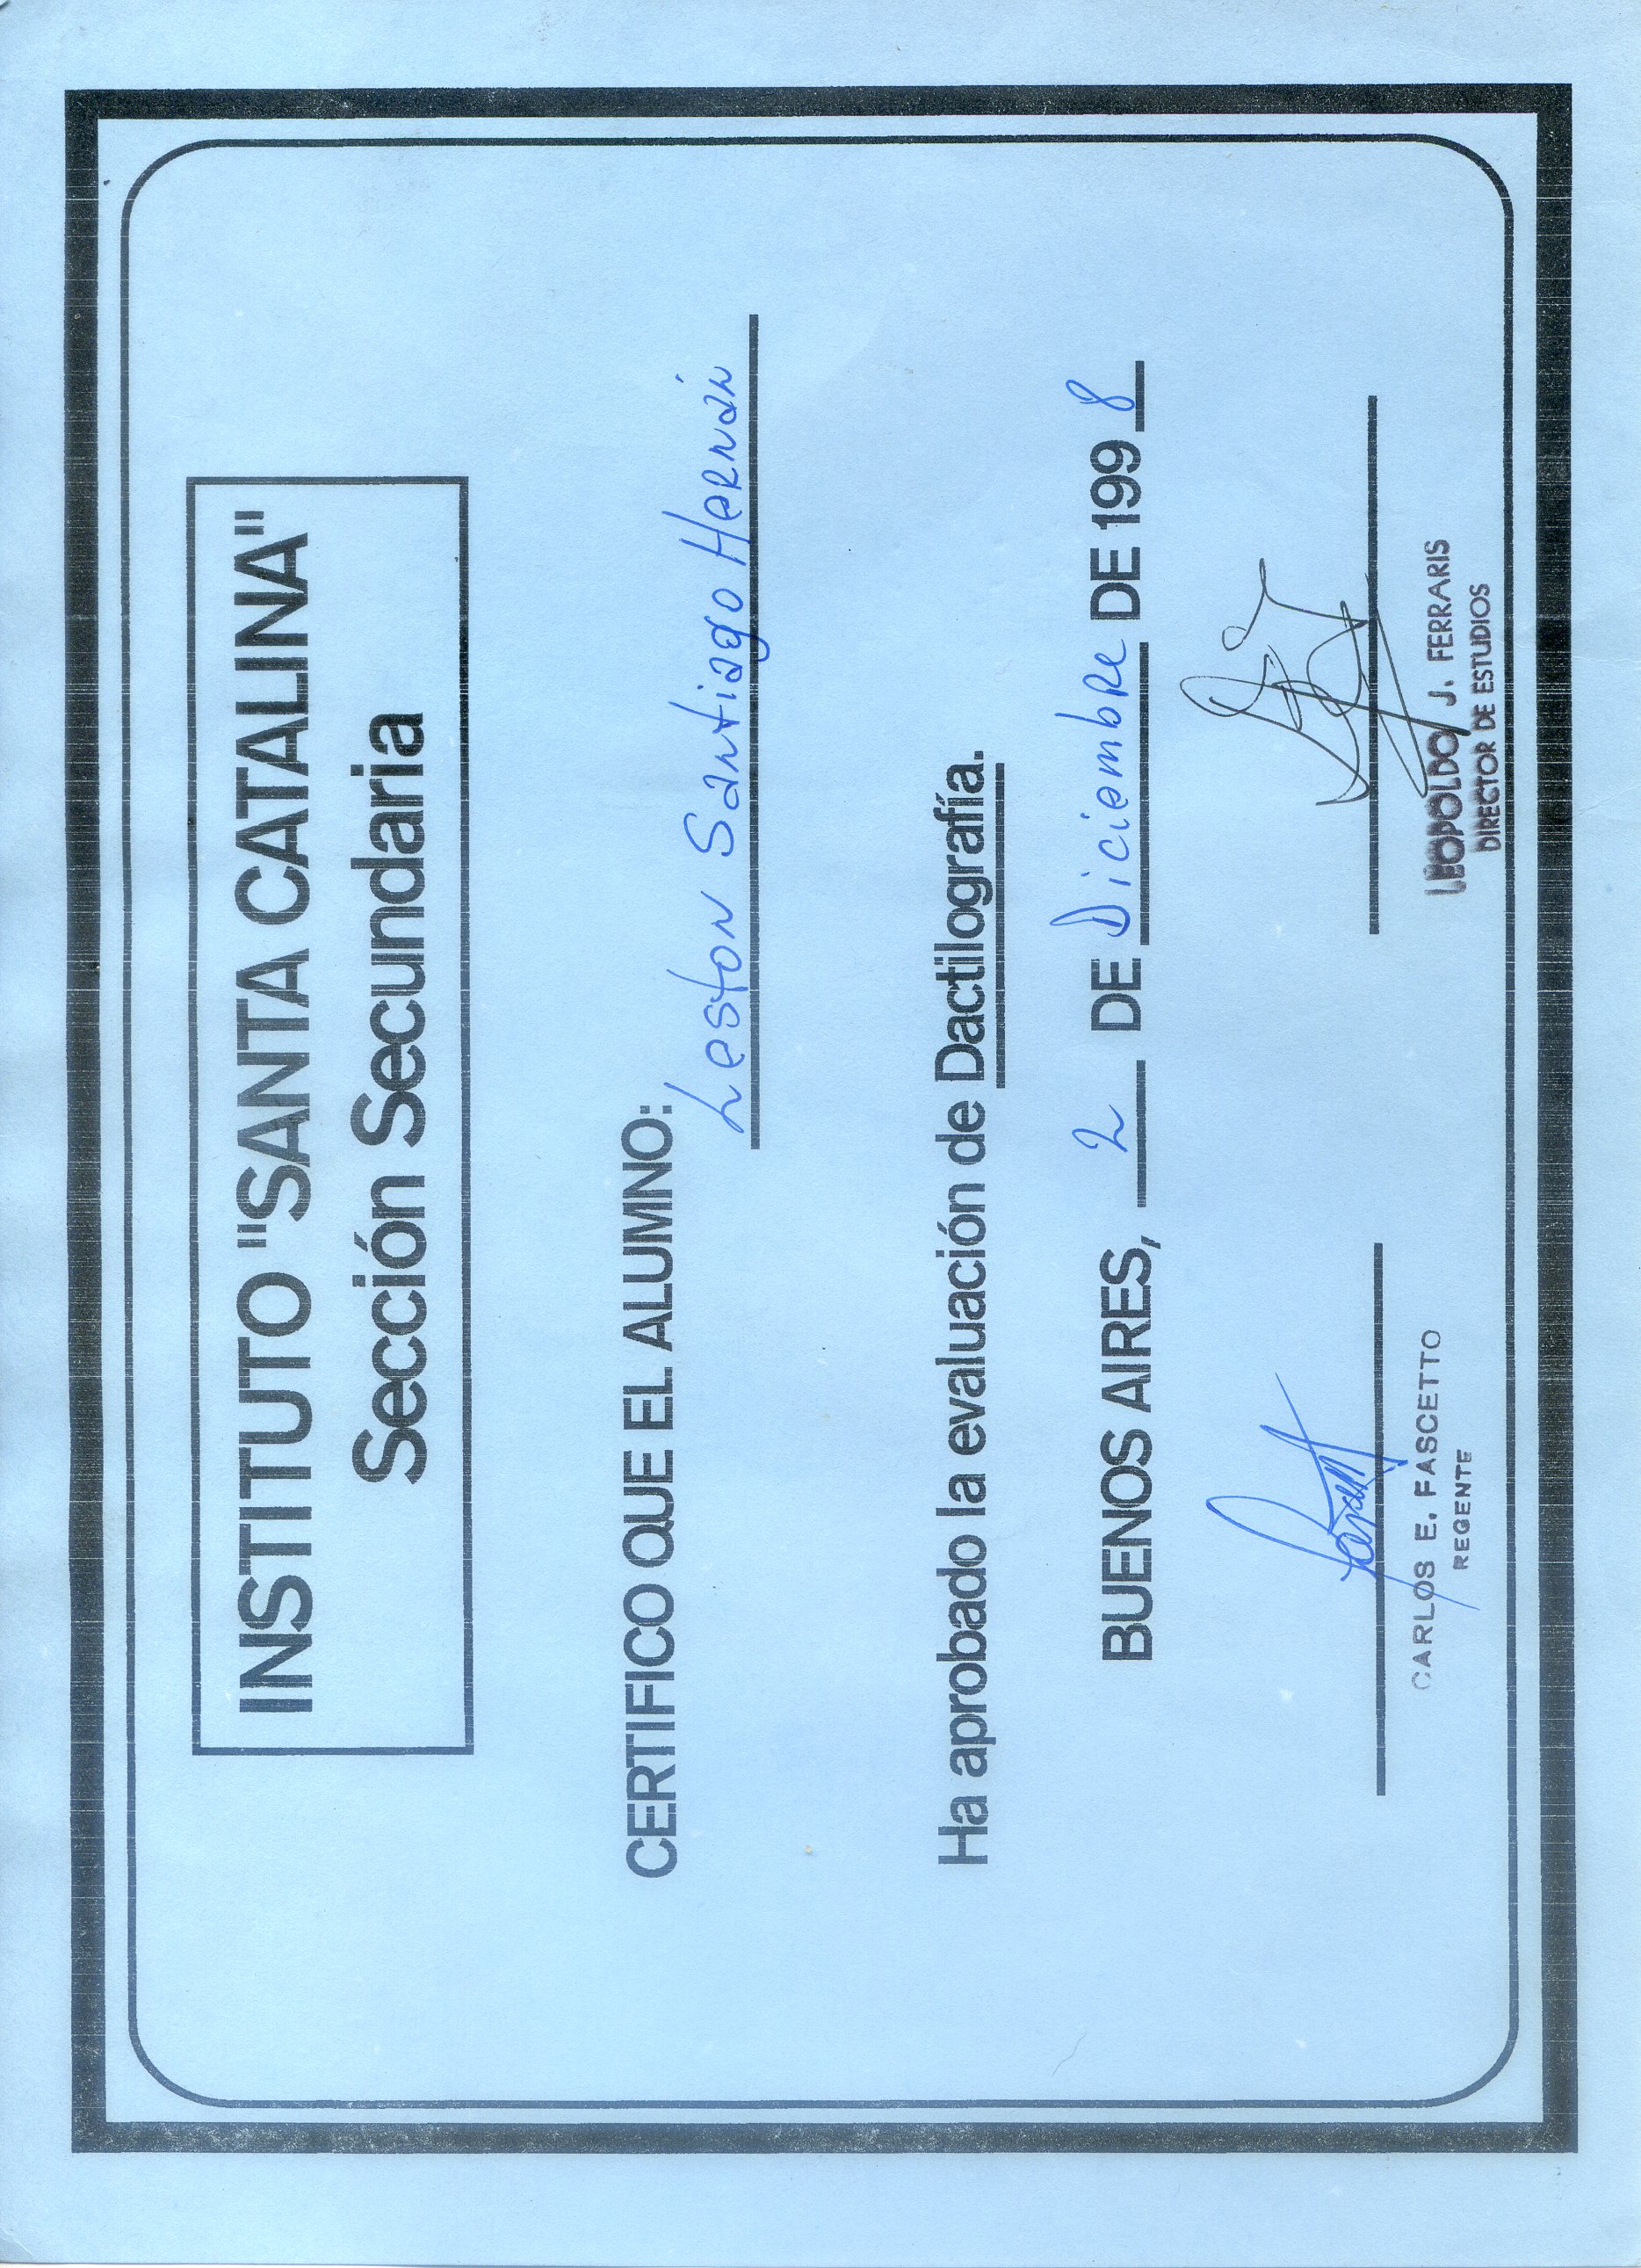 INSTITUTO "SANTA CATALINA"
Sección Secundaria
CERTIFICO QUE EL ALUMNO:
Leston Santiago Hernán
Ha aprobado la evaluación de Dactilografía.
BUENOS AIRES, 2 DE Diciembre DE 1998
CARLOS E. FASCETTO
REGENTE
LEOPOLDO J. FERRARIS
DIRECTOR DE ESTUDIOS